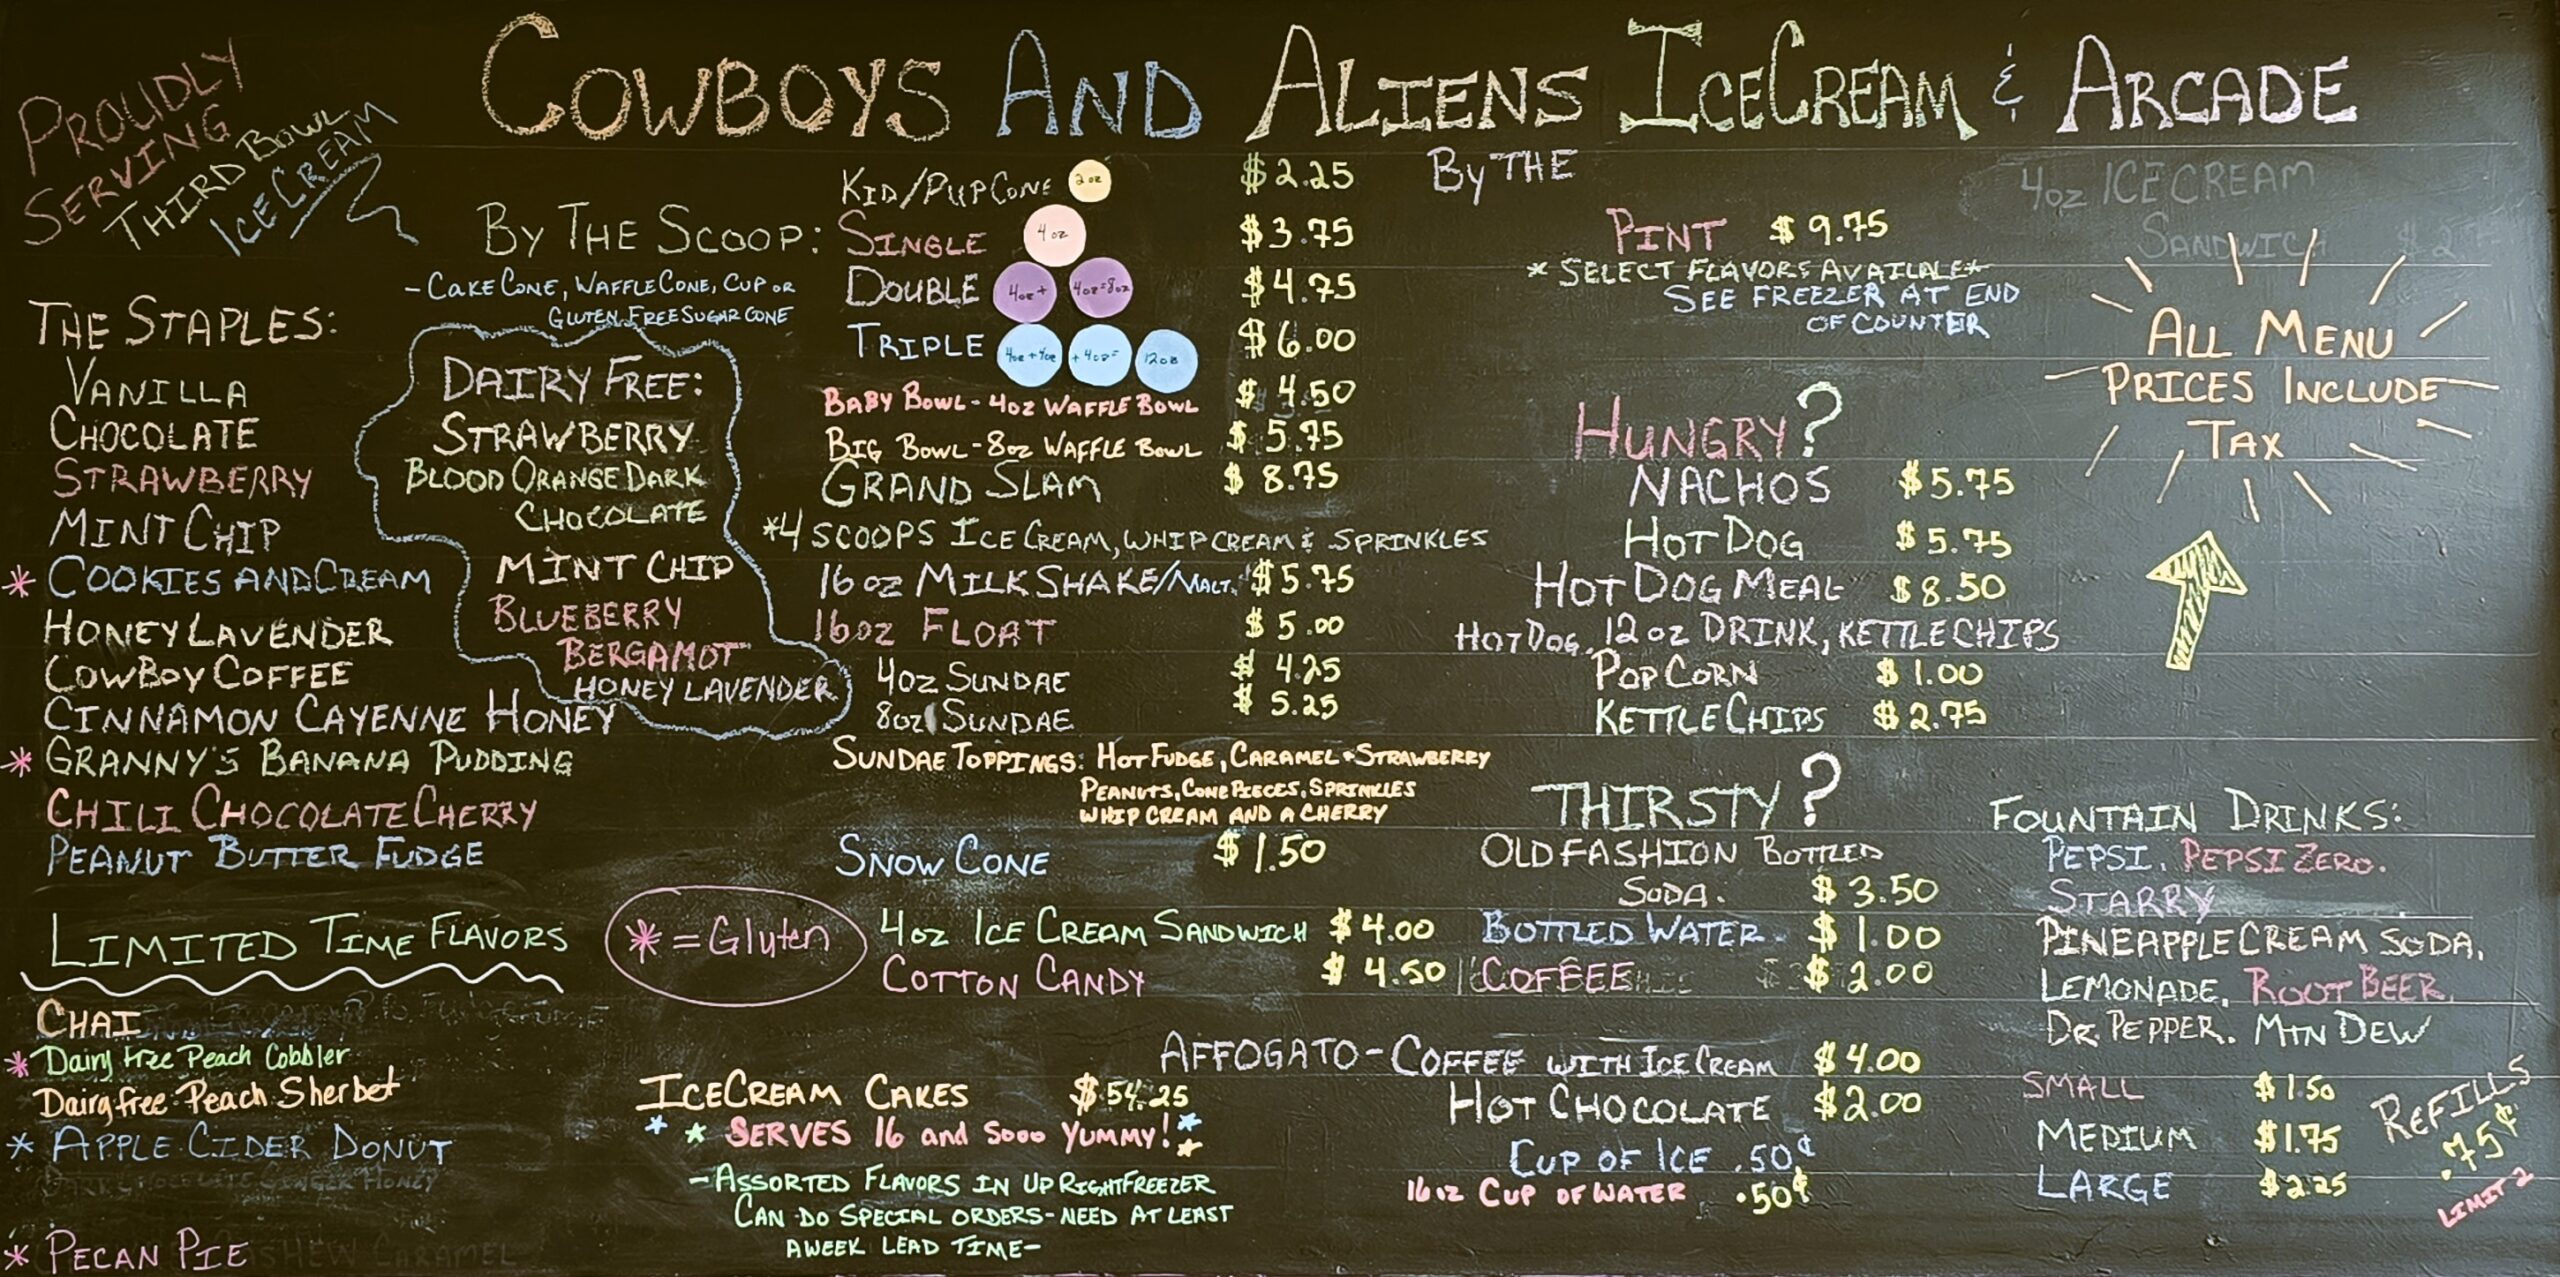 COWBOYS AND ALIENS ICECREAM & ARCADE
PROUDLY
SERVING
THIRD BOWL
ICE CREAM
THE STAPLES:
VANILLA
CHOCOLATE
STRAWBERRY
MINT CHIP
* COOKIES AND CREAM
HONEY LAVENDER
COWBOY COFFEE
CINNAMON CAYENNE HONEY
* GRANNY'S BANANA PUDDING
CHILI CHOCOLATE CHERRY
PEANUT BUTTER FUDGE
LIMITED TIME FLAVORS
CHAI
* Dairy Free Peach Cobbler
Dairy free Peach Sherbet
* APPLE CIDER DONUT
DARK CHOCOLATE GINGER HONEY
* PECAN PIE
CASHEW CARAMEL
BY THE SCOOP:
- CAKE CONE, WAFFLE CONE, CUP OR
GLUTEN FREE SUGAR CONE
DAIRY FREE:
STRAWBERRY
BLOOD ORANGE DARK
CHOCOLATE
MINT CHIP
BLUEBERRY
BERGAMOT
HONEY LAVENDER
* = Gluten
KID/PUP CONE 2oz $2.25
SINGLE 4oz $3.75
DOUBLE 4oz + 4oz = 8oz $4.75
TRIPLE 4oz + 4oz + 4oz = 12oz $6.00
BABY BOWL - 4oz WAFFLE BOWL $4.50
BIG BOWL - 8oz WAFFLE BOWL $5.75
GRAND SLAM $8.75
*4 SCOOPS ICE CREAM, WHIP CREAM & SPRINKLES
16oz MILKSHAKE/MALT. $5.75
16oz FLOAT $5.00
4oz SUNDAE $4.25
8oz SUNDAE $5.25
SUNDAE TOPPINGS: HOT FUDGE, CARAMEL • STRAWBERRY
PEANUTS, CONE PIECES, SPRINKLES
WHIP CREAM AND A CHERRY
SNOW CONE $1.50
4oz ICE CREAM SANDWICH $4.00
COTTON CANDY $4.50
ICECREAM CAKES $54.25
SERVES 16 and Sooo YUMMY!
- ASSORTED FLAVORS IN UPRIGHT FREEZER
CAN DO SPECIAL ORDERS - NEED AT LEAST
A WEEK LEAD TIME -
By THE
PINT $9.75
* SELECT FLAVORS AVAILALE *
SEE FREEZER AT END
OF COUNTER
HUNGRY?
NACHOS $5.75
HOT DOG $5.75
HOT DOG MEAL $8.50
HOT DOG, 12oz DRINK, KETTLE CHIPS
POPCORN $1.00
KETTLE CHIPS $2.75
THIRSTY?
OLD FASHION BOTTLED
SODA. $3.50
BOTTLED WATER $1.00
COFFEE $2.00
AFFOGATO - COFFEE WITH ICE CREAM $4.00
HOT CHOCOLATE $2.00
CUP OF ICE .50¢
16oz CUP OF WATER .50¢
4oz ICE CREAM
SANDWICH
ALL MENU
PRICES INCLUDE
TAX
FOUNTAIN DRINKS:
PEPSI, PEPSI ZERO.
STARRY
PINEAPPLE CREAM SODA,
LEMONADE, ROOT BEER,
DR. PEPPER. MTN DEW
SMALL $1.50
MEDIUM $1.75
LARGE $2.25
REFILLS
.75¢
LIMIT 2